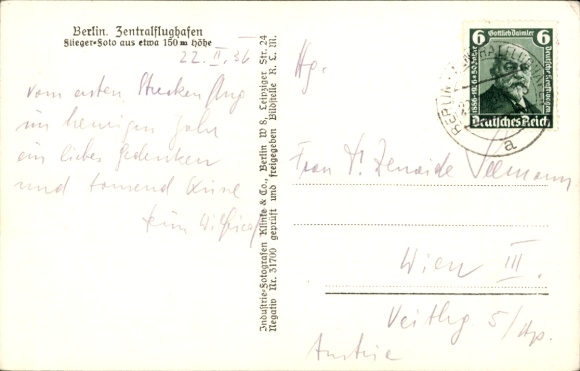 Berlin. Zentralflughafen
Flieger-Foto aus etwa 150 m Höhe
22. II. 36
vom ersten Streckenflug
im heurigen Jahr
ein liebes Gedenken
und tausend Küsse
Industrie-Fotografen Klinke & Co., Berlin W 8, Leipziger Str. 24
Negativ Nr. 31700 geprüft und freigegeben Bildstelle R. L. M.
6 Gottlieb Daimler 6
Deutsches Reich
BERLIN
a
Frau Dr. Zenaide Seemann
Wien III.
Veithg. 5/
Austria